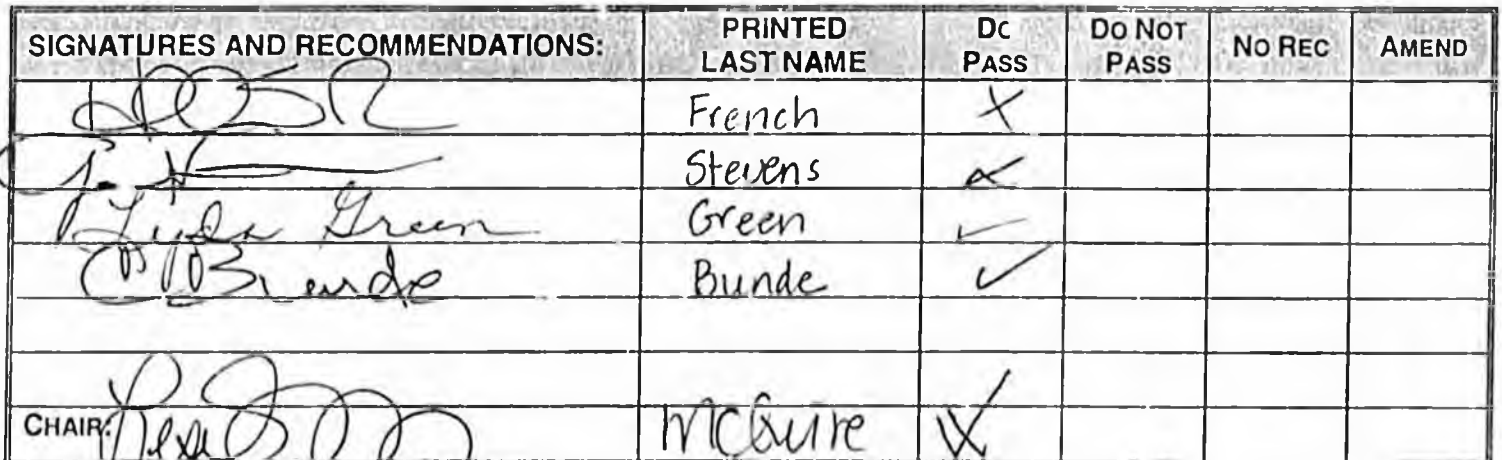 SIGNATURES AND RECOMMENDATIONS: PRINTED LAST NAME DC PASS DO NOT PASS NO REC AMEND
French X
Stevens
Linda Green Green ✓
Bunde Bunde ✓
CHAIR: McGuire X